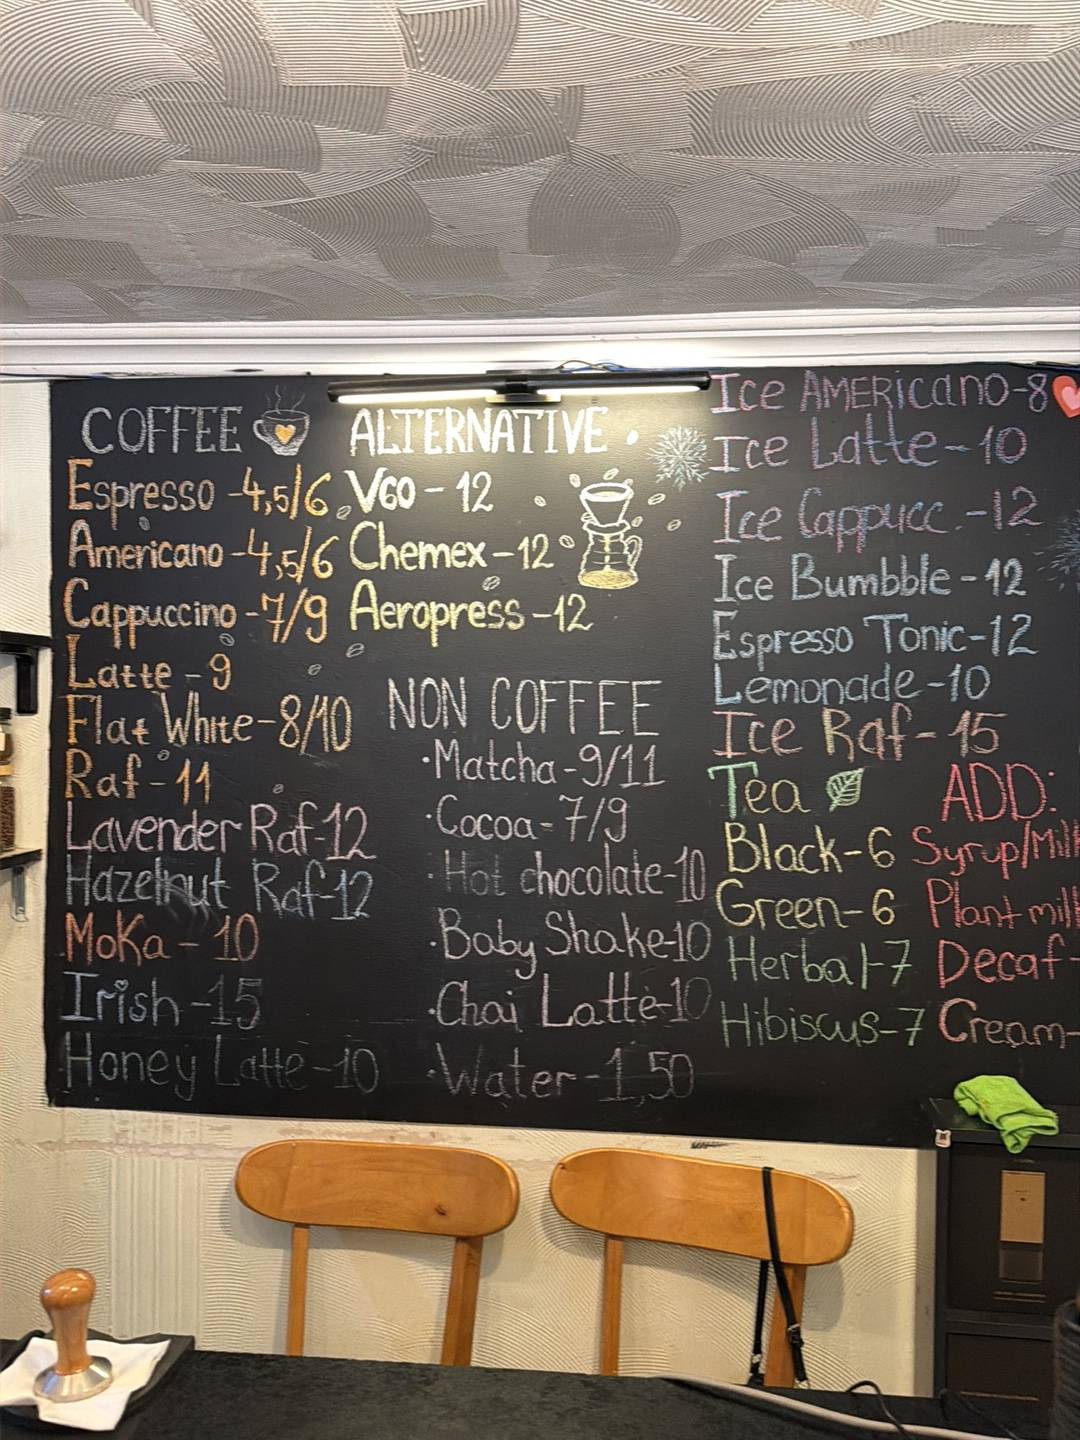 COFFEE
Espresso - 4,5/6
Americano - 4,5/6
Cappuccino - 7/9
Latte - 9
Flat White - 8/10
Raf - 11
Lavender Raf - 12
Hazelnut Raf - 12
Moka - 10
Irish - 15
Honey Latte - 10
ALTERNATIVE
V60 - 12
Chemex - 12
Aeropress - 12
NON COFFEE
·Matcha - 9/11
·Cocoa - 7/9
·Hot chocolate - 10
·Baby Shake - 10
·Chai Latte - 10
·Water - 1,50
Ice AMERICano - 8
Ice Latte - 10
Ice Cappucc. - 12
Ice Bumbble - 12
Espresso Tonic - 12
Lemonade - 10
Ice Raf - 15
Tea
Black - 6
Green - 6
Herbal - 7
Hibiscus - 7
ADD:
Syrup/Milk
Plant milk
Decaf -
Cream -